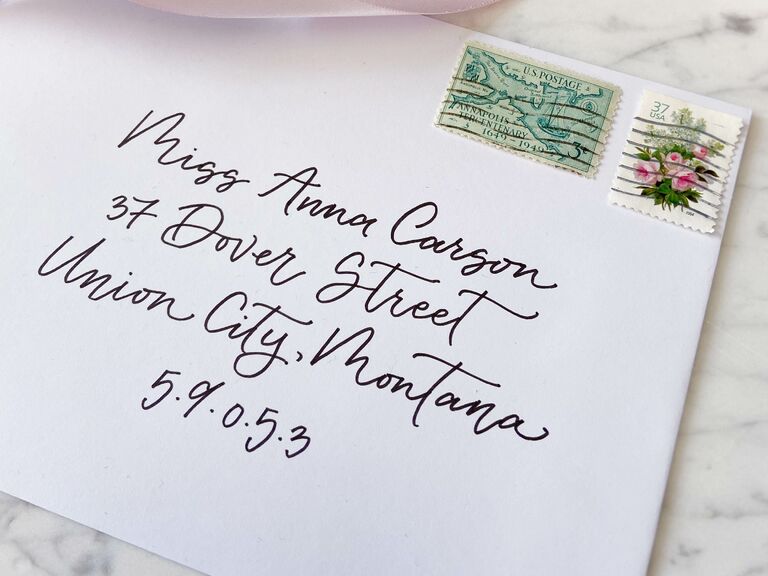 U.S. POSTAGE
ANNAPOLIS
TERCENTENARY
1649-1949
3¢
37
USA
Miss Anna Carson
37 Dover Street
Union City, Montana
5.9.0.5.3